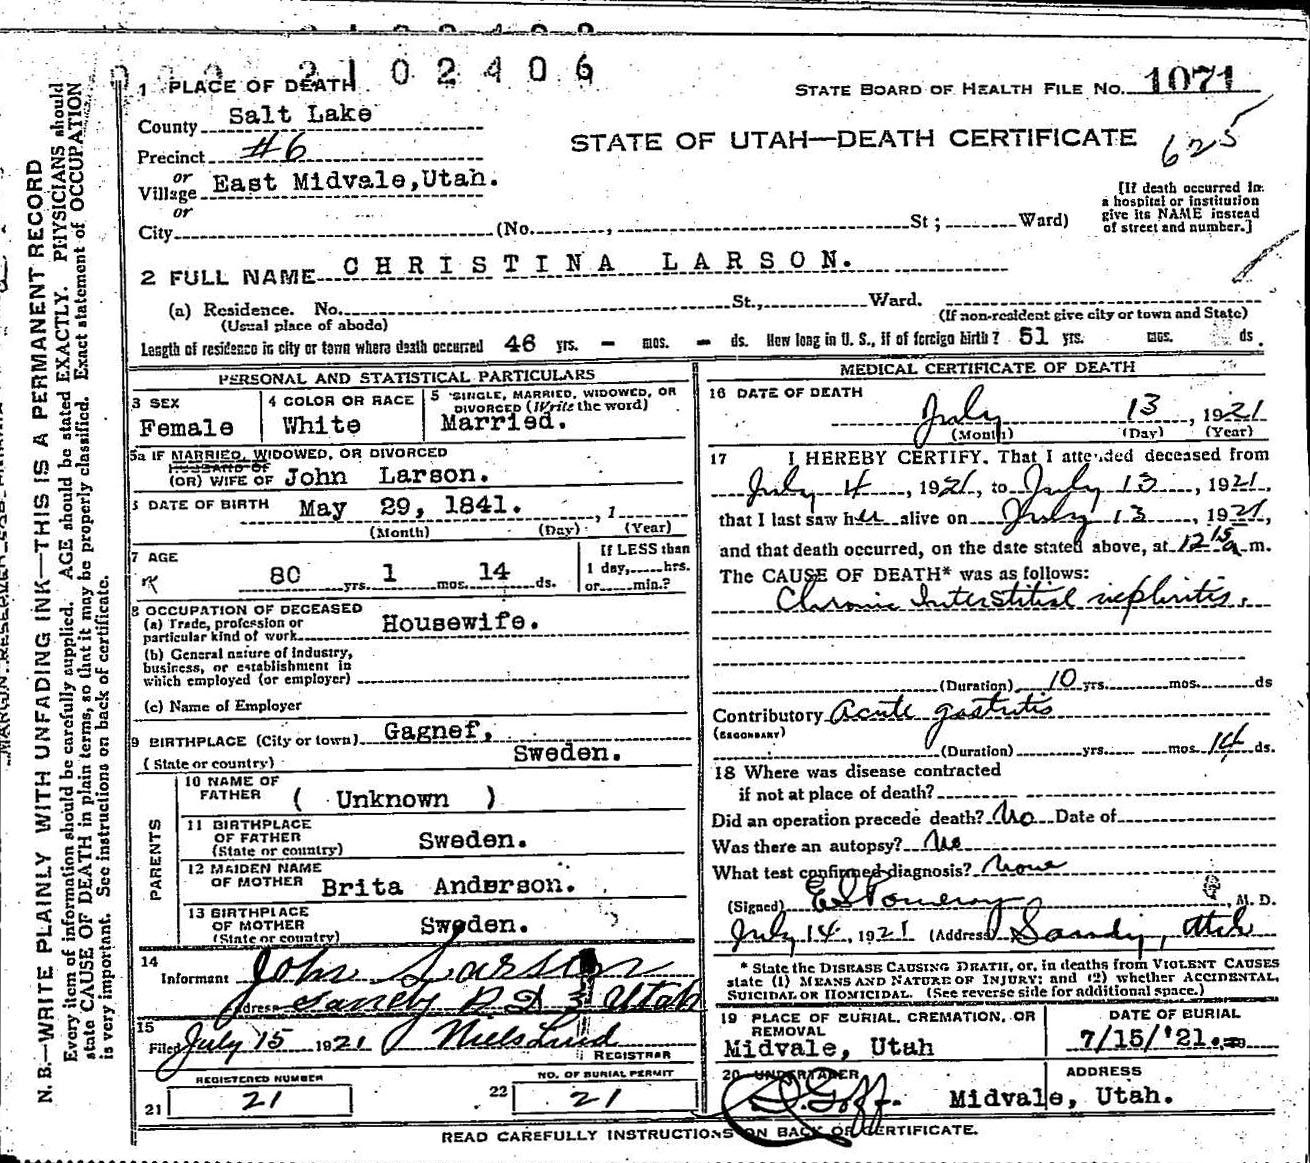 2102406
1 PLACE OF DEATH
STATE BOARD OF HEALTH FILE NO. 1071
County Salt Lake
STATE OF UTAH—DEATH CERTIFICATE
625
Precinct #6
or
Village East Midvale, Utah.
or
City (No. , St ; Ward)
[If death occurred in
a hospital or institution
give its NAME instead
of street and number.]
2 FULL NAME CHRISTINA LARSON.
(a) Residence. No. St., Ward.
(Usual place of abode)
(If non-resident give city or town and State)
Length of residence in city or town where death occurred 46 yrs. - mos. - ds. How long in U. S., if of foreign birth? 51 yrs. mos. ds.
PERSONAL AND STATISTICAL PARTICULARS
3 SEX
Female
4 COLOR OR RACE
White
5 SINGLE, MARRIED, WIDOWED, OR
DIVORCED (Write the word)
Married.
5a IF MARRIED, WIDOWED, OR DIVORCED
HUSBAND OF
(OR) WIFE OF John Larson.
DATE OF BIRTH May 29, 1841. , 1
(Month) (Day) (Year)
7 AGE
80 yrs. 1 mos. 14 ds.
If LESS than
1 day, hrs.
or min.?
8 OCCUPATION OF DECEASED
(a) Trade, profession or
particular kind of work Housewife.
(b) General nature of industry,
business, or establishment in
which employed (or employer)
(c) Name of Employer
9 BIRTHPLACE (City or town) Gagnef,
(State or country) Sweden.
PARENTS
10 NAME OF
FATHER ( Unknown )
11 BIRTHPLACE
OF FATHER
(State or country) Sweden.
12 MAIDEN NAME
OF MOTHER Brita Anderson.
13 BIRTHPLACE
OF MOTHER
(State or country) Sweden.
14
Informant John Larson
Address Sandy R D 3 Utah
15
Filed July 15 1921 Niels Lind
REGISTRAR
REGISTERED NUMBER
21 21
NO. OF BURIAL PERMIT
22 21
MEDICAL CERTIFICATE OF DEATH
16 DATE OF DEATH
July 13, 1921
(Month) (Day) (Year)
17 I HEREBY CERTIFY, That I attended deceased from
July 4, 1921, to July 13, 1921,
that I last saw her alive on July 13, 1921,
and that death occurred, on the date stated above, at 12 15 a. m.
The CAUSE OF DEATH* was as follows:
Chronic Interstitial nephritis.
(Duration) 10 yrs. mos. ds
Contributory Acute gastritis
(SECONDARY)
(Duration) yrs. mos. 14 ds.
18 Where was disease contracted
if not at place of death?
Did an operation precede death? No Date of
Was there an autopsy? No
What test confirmed diagnosis? None
(Signed) E S Pomeroy, M. D.
July 14, 1921 (Address Sandy, Utah
* State the DISEASE CAUSING DEATH, or, in deaths from VIOLENT CAUSES
state (1) MEANS AND NATURE OF INJURY; and (2) whether ACCIDENTAL,
SUICIDAL OR HOMICIDAL. (See reverse side for additional space.)
19 PLACE OF BURIAL, CREMATION, OR
REMOVAL
Midvale, Utah
DATE OF BURIAL
7/15/'21.
20 UNDERTAKER
D. Goff.
ADDRESS
Midvale, Utah.
READ CAREFULLY INSTRUCTIONS ON BACK OF CERTIFICATE.
N. B.—WRITE PLAINLY WITH UNFADING INK—THIS IS A PERMANENT RECORD
Every item of information should be carefully supplied. AGE should be stated EXACTLY. PHYSICIANS should
state CAUSE OF DEATH in plain terms, so that it may be properly classified. Exact statement of OCCUPATION
is very important. See instructions on back of certificate.